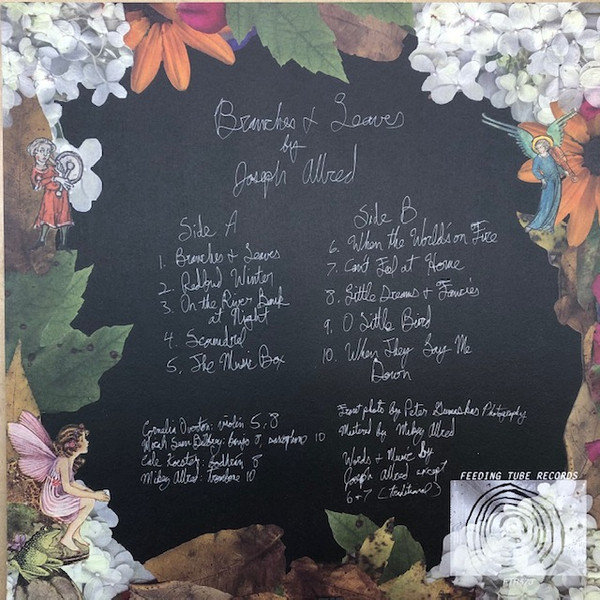 Branches & Leaves
by
Joseph Allred
Side A
1. Branches & Leaves
2. Redbud Winter
3. On the River Bank
at Night
4. Scoundrel
5. The Music Box
Side B
6. When the World's on Fire
7. Can't Feel at Home
8. Little Dreams & Fancies
9. O Little Bird
10. When They Lay Me
Down
Cornelia Overton: violin 5, 8
bongs 8, saxophone 10
8
Mikey Allred: trombone 10
Front photo by Peter Photography
Mastered by Mikey Allred
Words & Music by
Joseph Allred except
6 & 7 (traditional)
FEEDING TUBE RECORDS